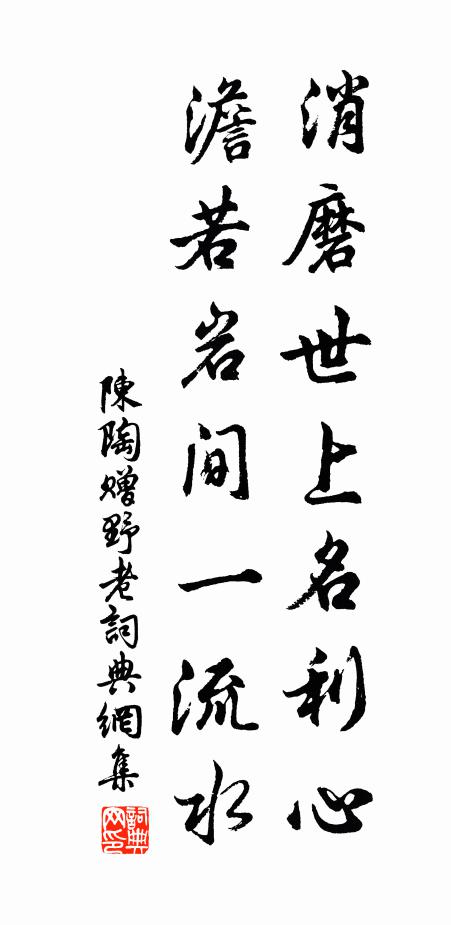 消磨世上名利心
澹若岩间一流水
陳陶赠野老詞典網集
詞典网印